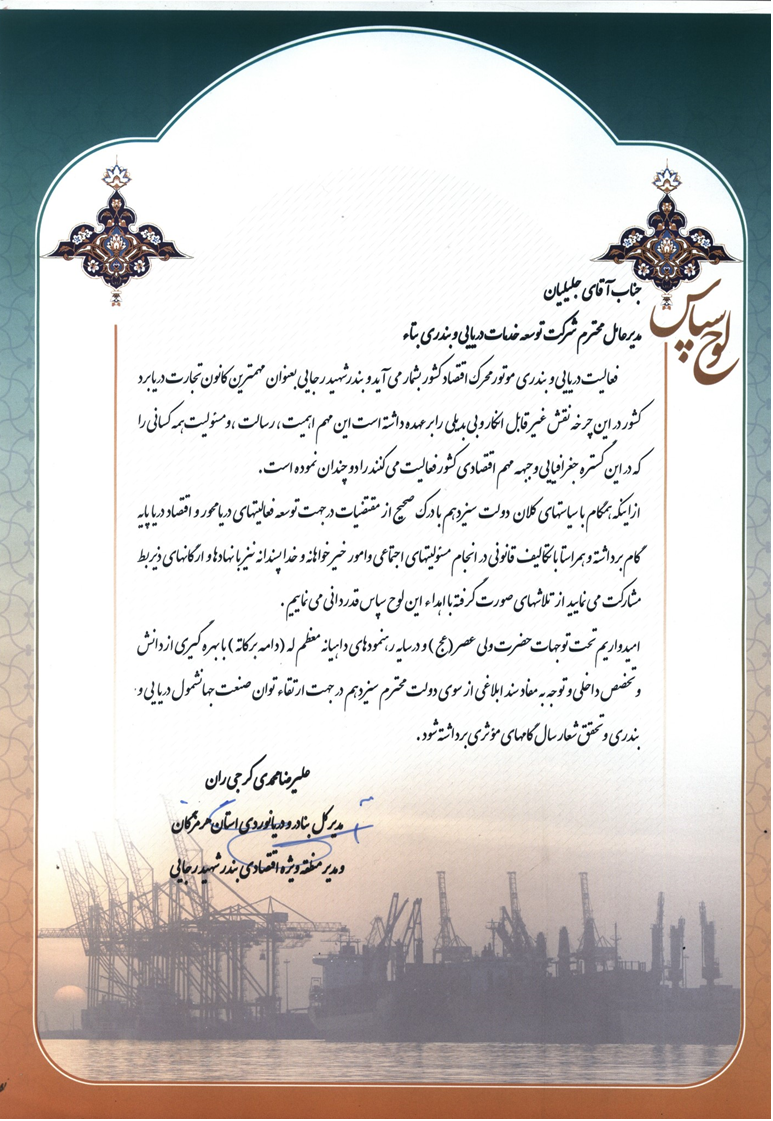 لوح سپاس
جناب آقای جلیلیان
مدیرعامل محترم شرکت توسعه خدمات دریایی و بندری بتاء
فعالیت دریایی و بندری موتور محرک اقتصاد کشور بشمار می آید و بندر شهید رجایی بعنوان مهمترین کانون تجارت دریابرد
کشور در این چرخه نقش غیر قابل انکار و بی بدیلی را بر عهده داشته است این مهم اهمیت، رسالت ،و مسئولیت همه کسانی را
که در این گستره جغرافیایی و جبهه مهم اقتصادی کشور فعالیت می کنند را دو چندان نموده است.
از اینکه همگام با سیاستهای کلان دولت سیزدهم با درک صحیح از مقتضیات در جهت توسعه فعالیتهای دریا محور و اقتصاد دریا پایه
گام برداشته و همراستا با تکالیف قانونی در انجام مسئولیتهای اجتماعی و امور خیرخواهانه و خداپسندانه نیز با نهادها و ارگانهای ذیربط
مشارکت می نمایید از تلاشهای صورت گرفته با اهداء این لوح سپاس قدردانی می نماییم .
امیدواریم تحت توجهات حضرت ولی عصر (عج) و در سایه رهنمودهای داهیانه معظم له (دامه برکاته) با بهره گیری از دانش
و تخصص داخلی و توجه به مفاد سند ابلاغی از سوی دولت محترم سیزدهم در جهت ارتقاء توان صنعت جهانشمول دریایی و
بندری و تحقق شعار سال گامهای مؤثری برداشته شود .
علیرضا محمدی کرجی ران
مدیر کل بنادر و دریانوردی استان هرمزگان
و مدیر منطقه ویژه اقتصادی بندر شهید رجایی